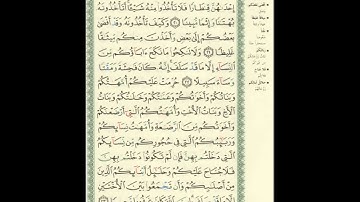 إِحْدَىٰهُنَّ قِنطَارًا فَلَا تَأْخُذُوا۟ مِنْهُ شَيْـًٔا أَتَأْخُذُونَهُۥ
بُهْتَـٰنًا وَإِثْمًا مُّبِينًا ٢٠ وَكَيْفَ تَأْخُذُونَهُۥ وَقَدْ أَفْضَىٰ
بَعْضُكُمْ إِلَىٰ بَعْضٍ وَأَخَذْنَ مِنكُم مِّيثَـٰقًا
غَلِيظًا ٢١ وَلَا تَنكِحُوا۟ مَا نَكَحَ ءَابَآؤُكُم مِّنَ
ٱلنِّسَآءِ إِلَّا مَا قَدْ سَلَفَ إِنَّهُۥ كَانَ فَـٰحِشَةً وَمَقْتًا
وَسَآءَ سَبِيلًا ٢٢ حُرِّمَتْ عَلَيْكُمْ أُمَّهَـٰتُكُمْ
وَبَنَاتُكُمْ وَأَخَوَٰتُكُمْ وَعَمَّـٰتُكُمْ وَخَـٰلَـٰتُكُمْ وَبَنَاتُ
ٱلْأَخِ وَبَنَاتُ ٱلْأُخْتِ وَأُمَّهَـٰتُكُمُ ٱلَّـٰتِىٓ أَرْضَعْنَكُمْ
وَأَخَوَٰتُكُم مِّنَ ٱلرَّضَـٰعَةِ وَأُمَّهَـٰتُ نِسَآئِكُمْ
وَرَبَـٰٓئِبُكُمُ ٱلَّـٰتِى فِى حُجُورِكُم مِّن نِّسَآئِكُمُ
ٱلَّـٰتِى دَخَلْتُم بِهِنَّ فَإِن لَّمْ تَكُونُوا۟ دَخَلْتُم بِهِنَّ
فَلَا جُنَاحَ عَلَيْكُمْ وَحَلَـٰٓئِلُ أَبْنَآئِكُمُ ٱلَّذِينَ
مِنْ أَصْلَـٰبِكُمْ وَأَن تَجْمَعُوا۟ بَيْنَ ٱلْأُخْتَيْنِ